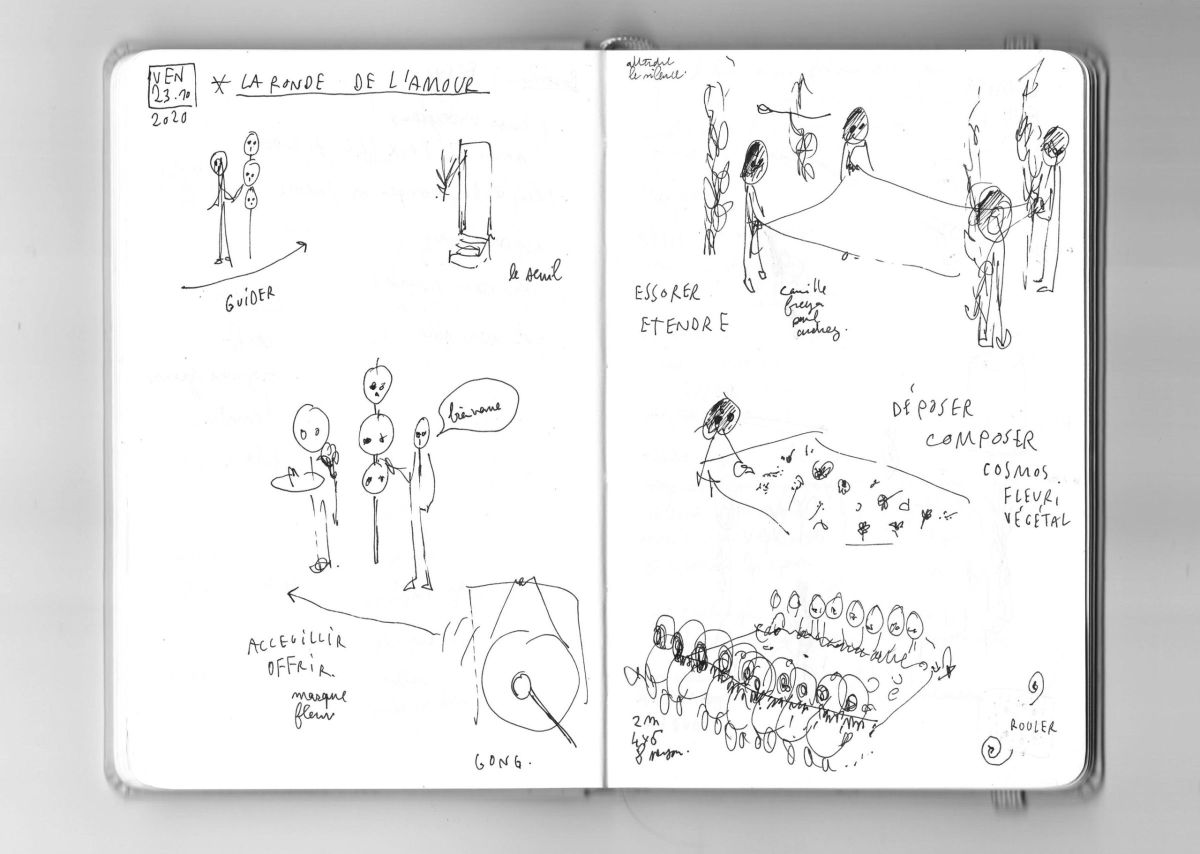 VEN
23.10
2020
* LA RONDE DE L'AMOUR
GUIDER
le seuil
bienvenue
ACCEUILLIR
OFFRIR.
masque
fleur
GONG.
attendre
le silence.
ESSORER
ETENDRE
camille
freya
paul
audrey.
DÉPOSER
COMPOSER
COSMOS.
FLEURI,
VÉGÉTAL
2m
4x5
ROULER